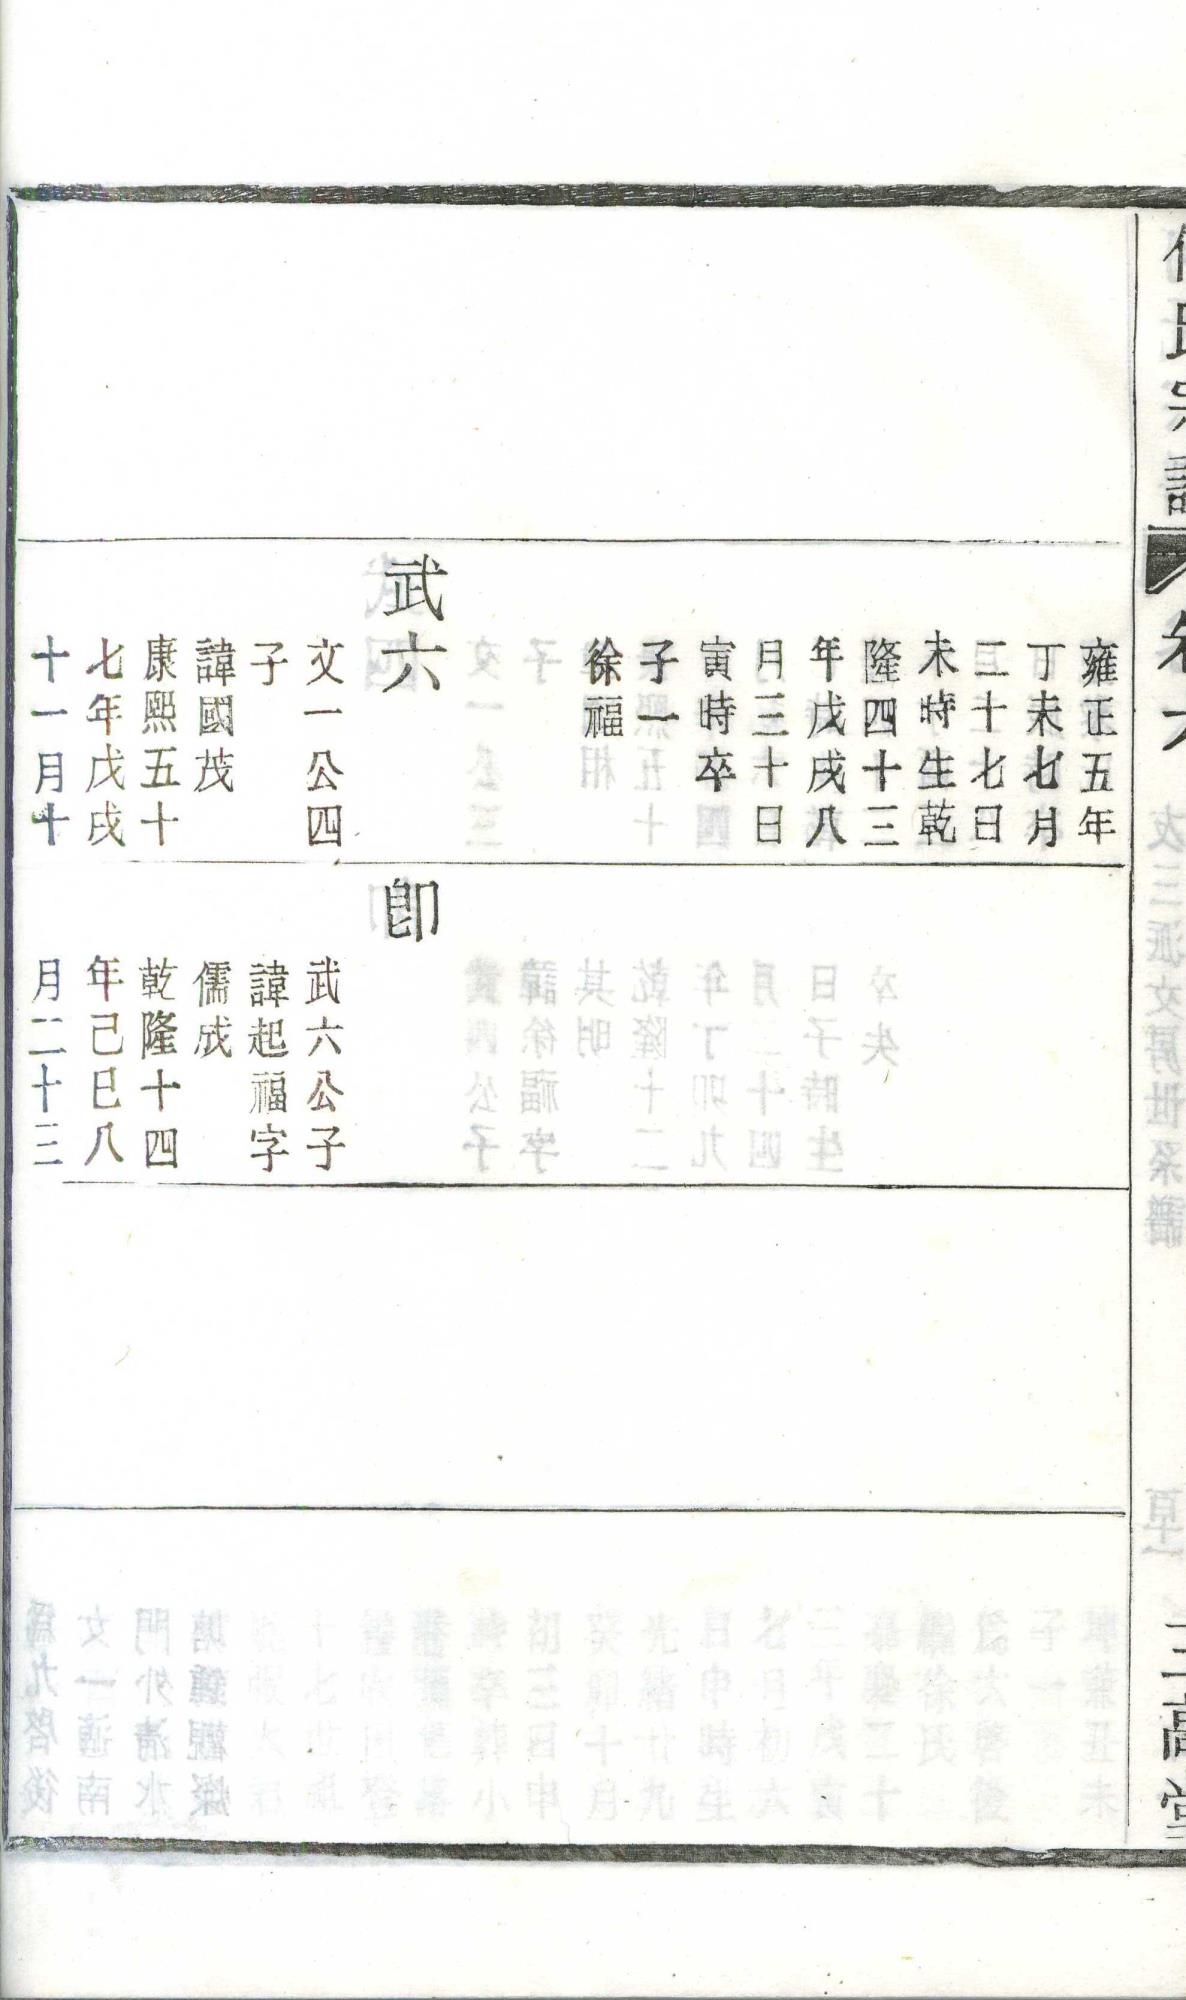 雍正五年
丁未七月
二十七日
未時生乾
隆四十三
年戊戌八
月三十日
寅時卒
子一
徐福
武六
文一公四
子
諱國茂
康熙五十
七年戊戌
十一月十
卽
武六公子
諱起福字
儒成
乾隆十四
年己巳八
月二十三